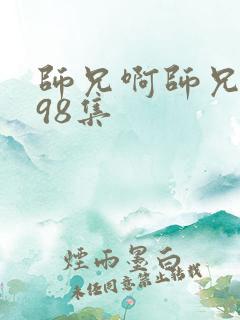 師兄啊師兄
98集
煙雨墨白
未经同意禁止转载